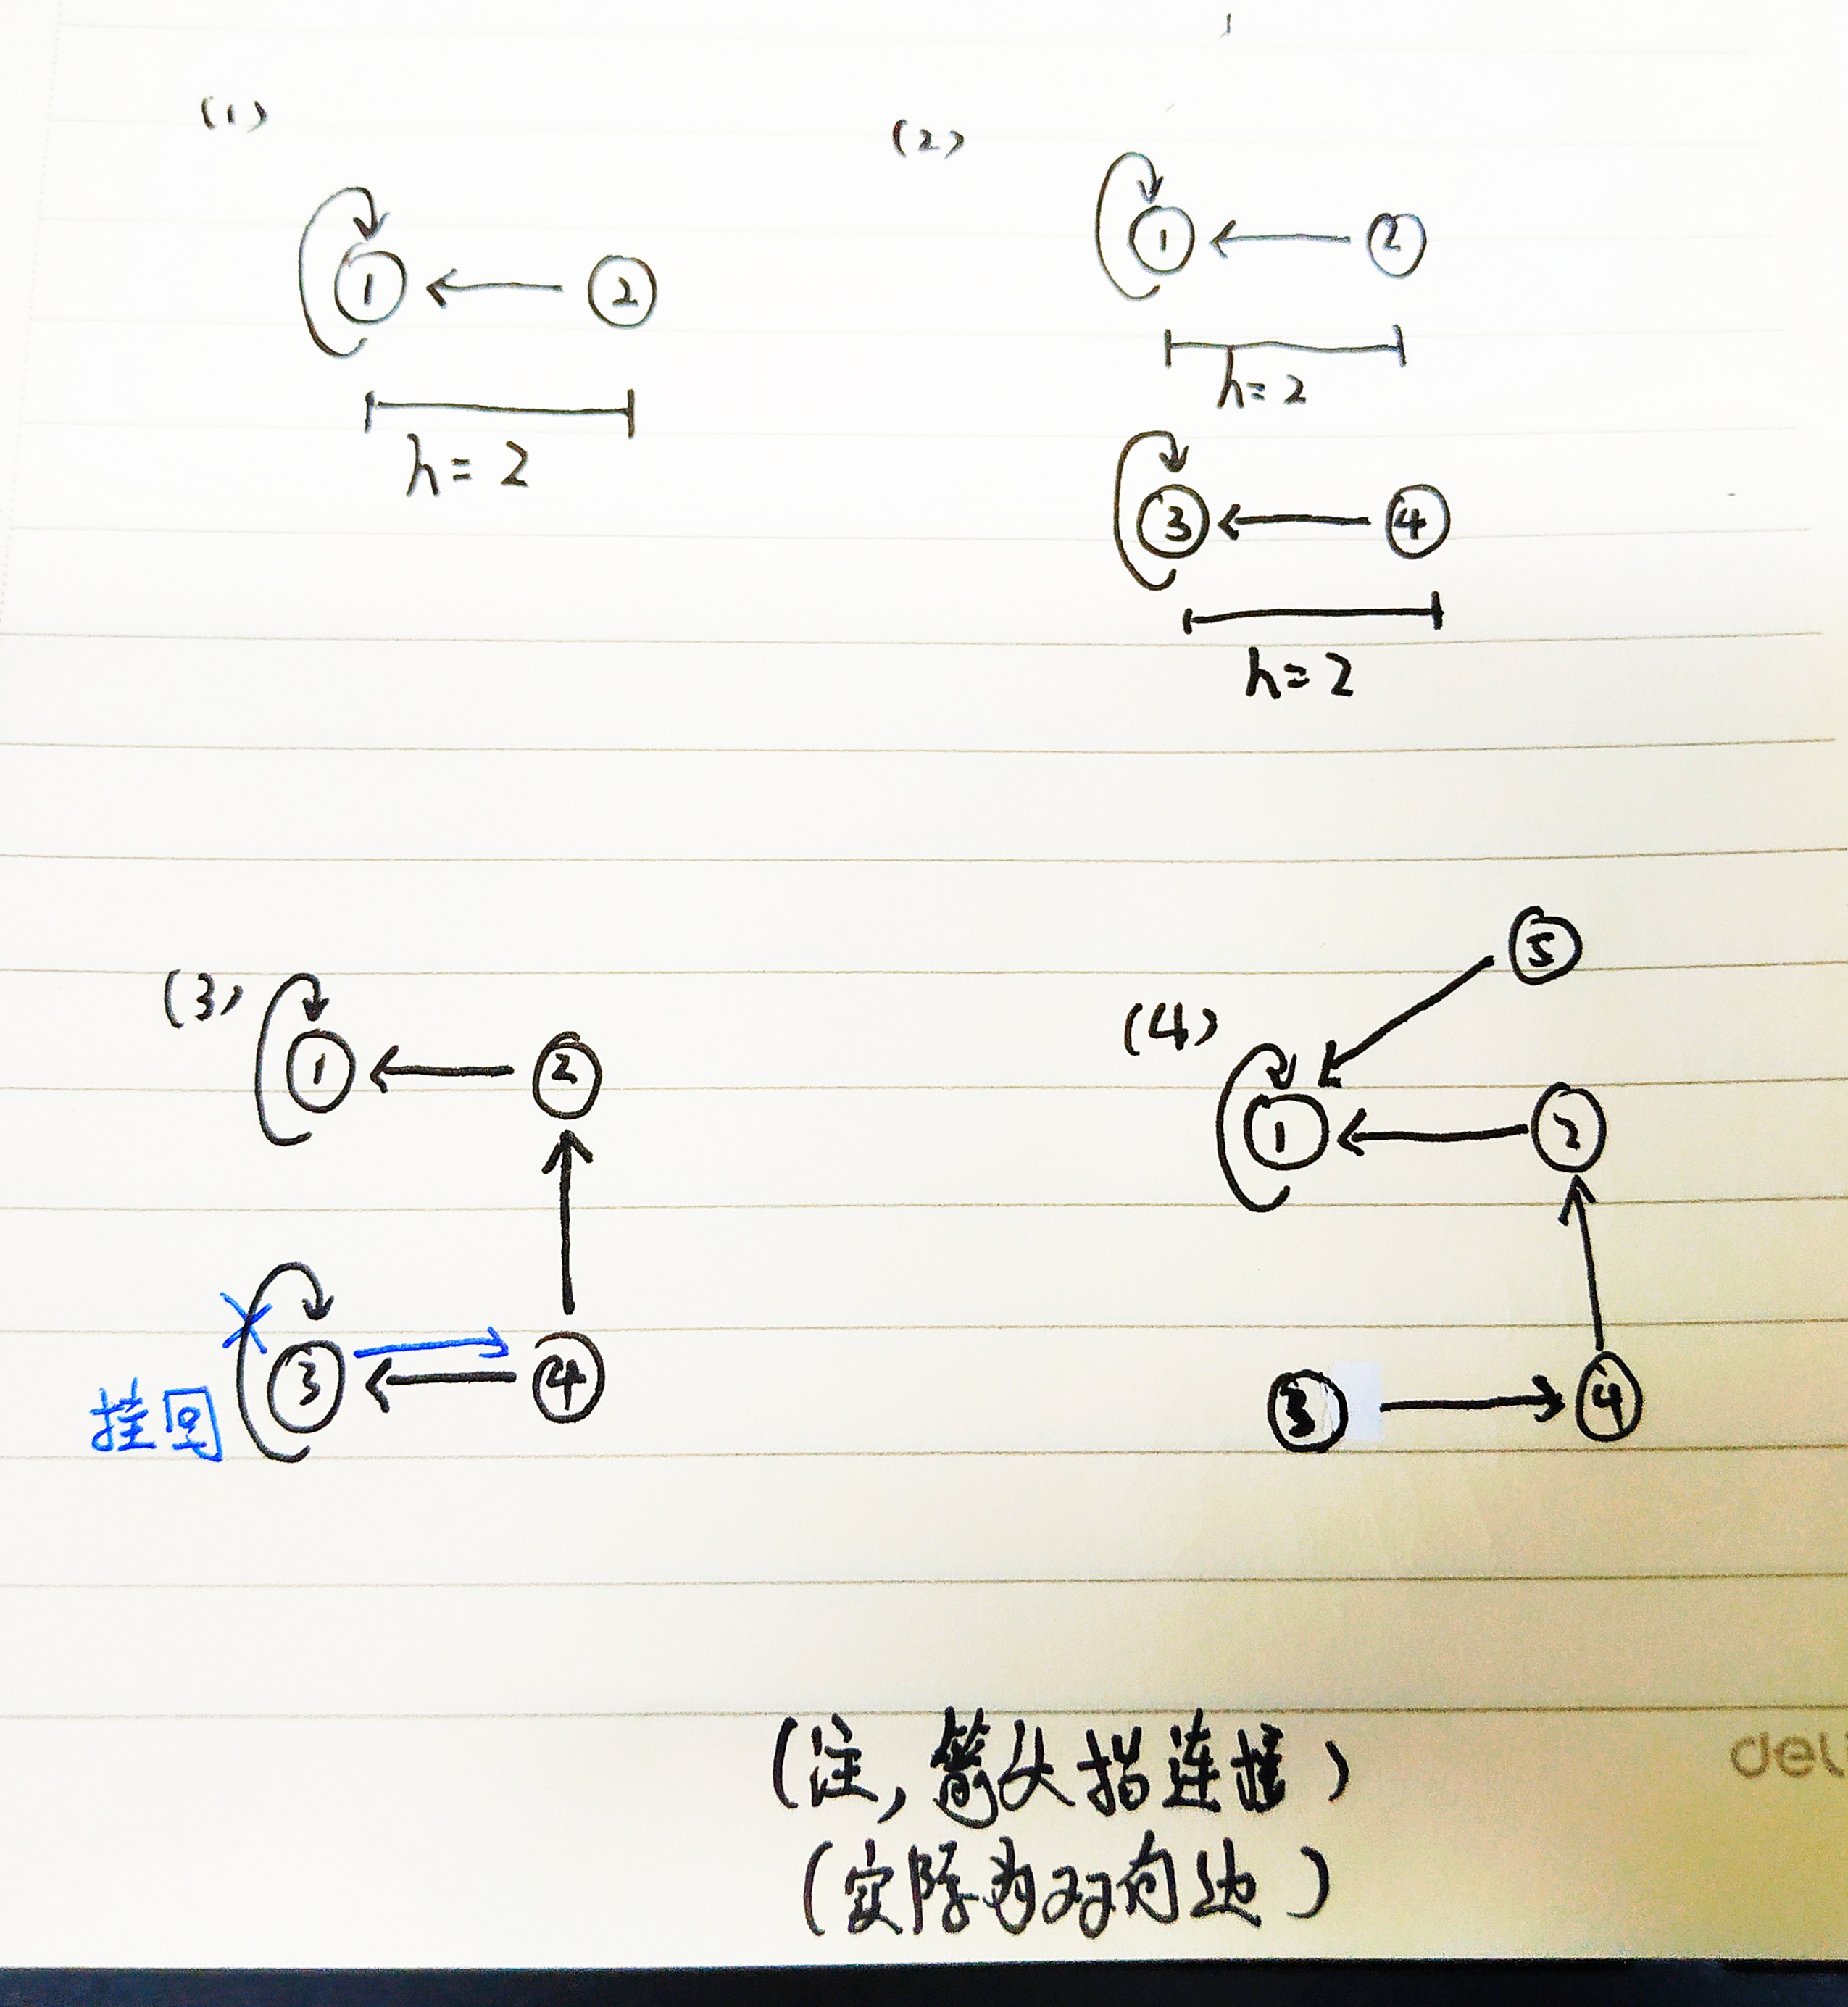 (1)
1
2
h=2
(2)
1
2
h=2
3
4
h=2
(3)
1
2
3
4
挂回
(4)
5
1
2
3
4
(注,箭头指连接)
(实际为双向边)
deli